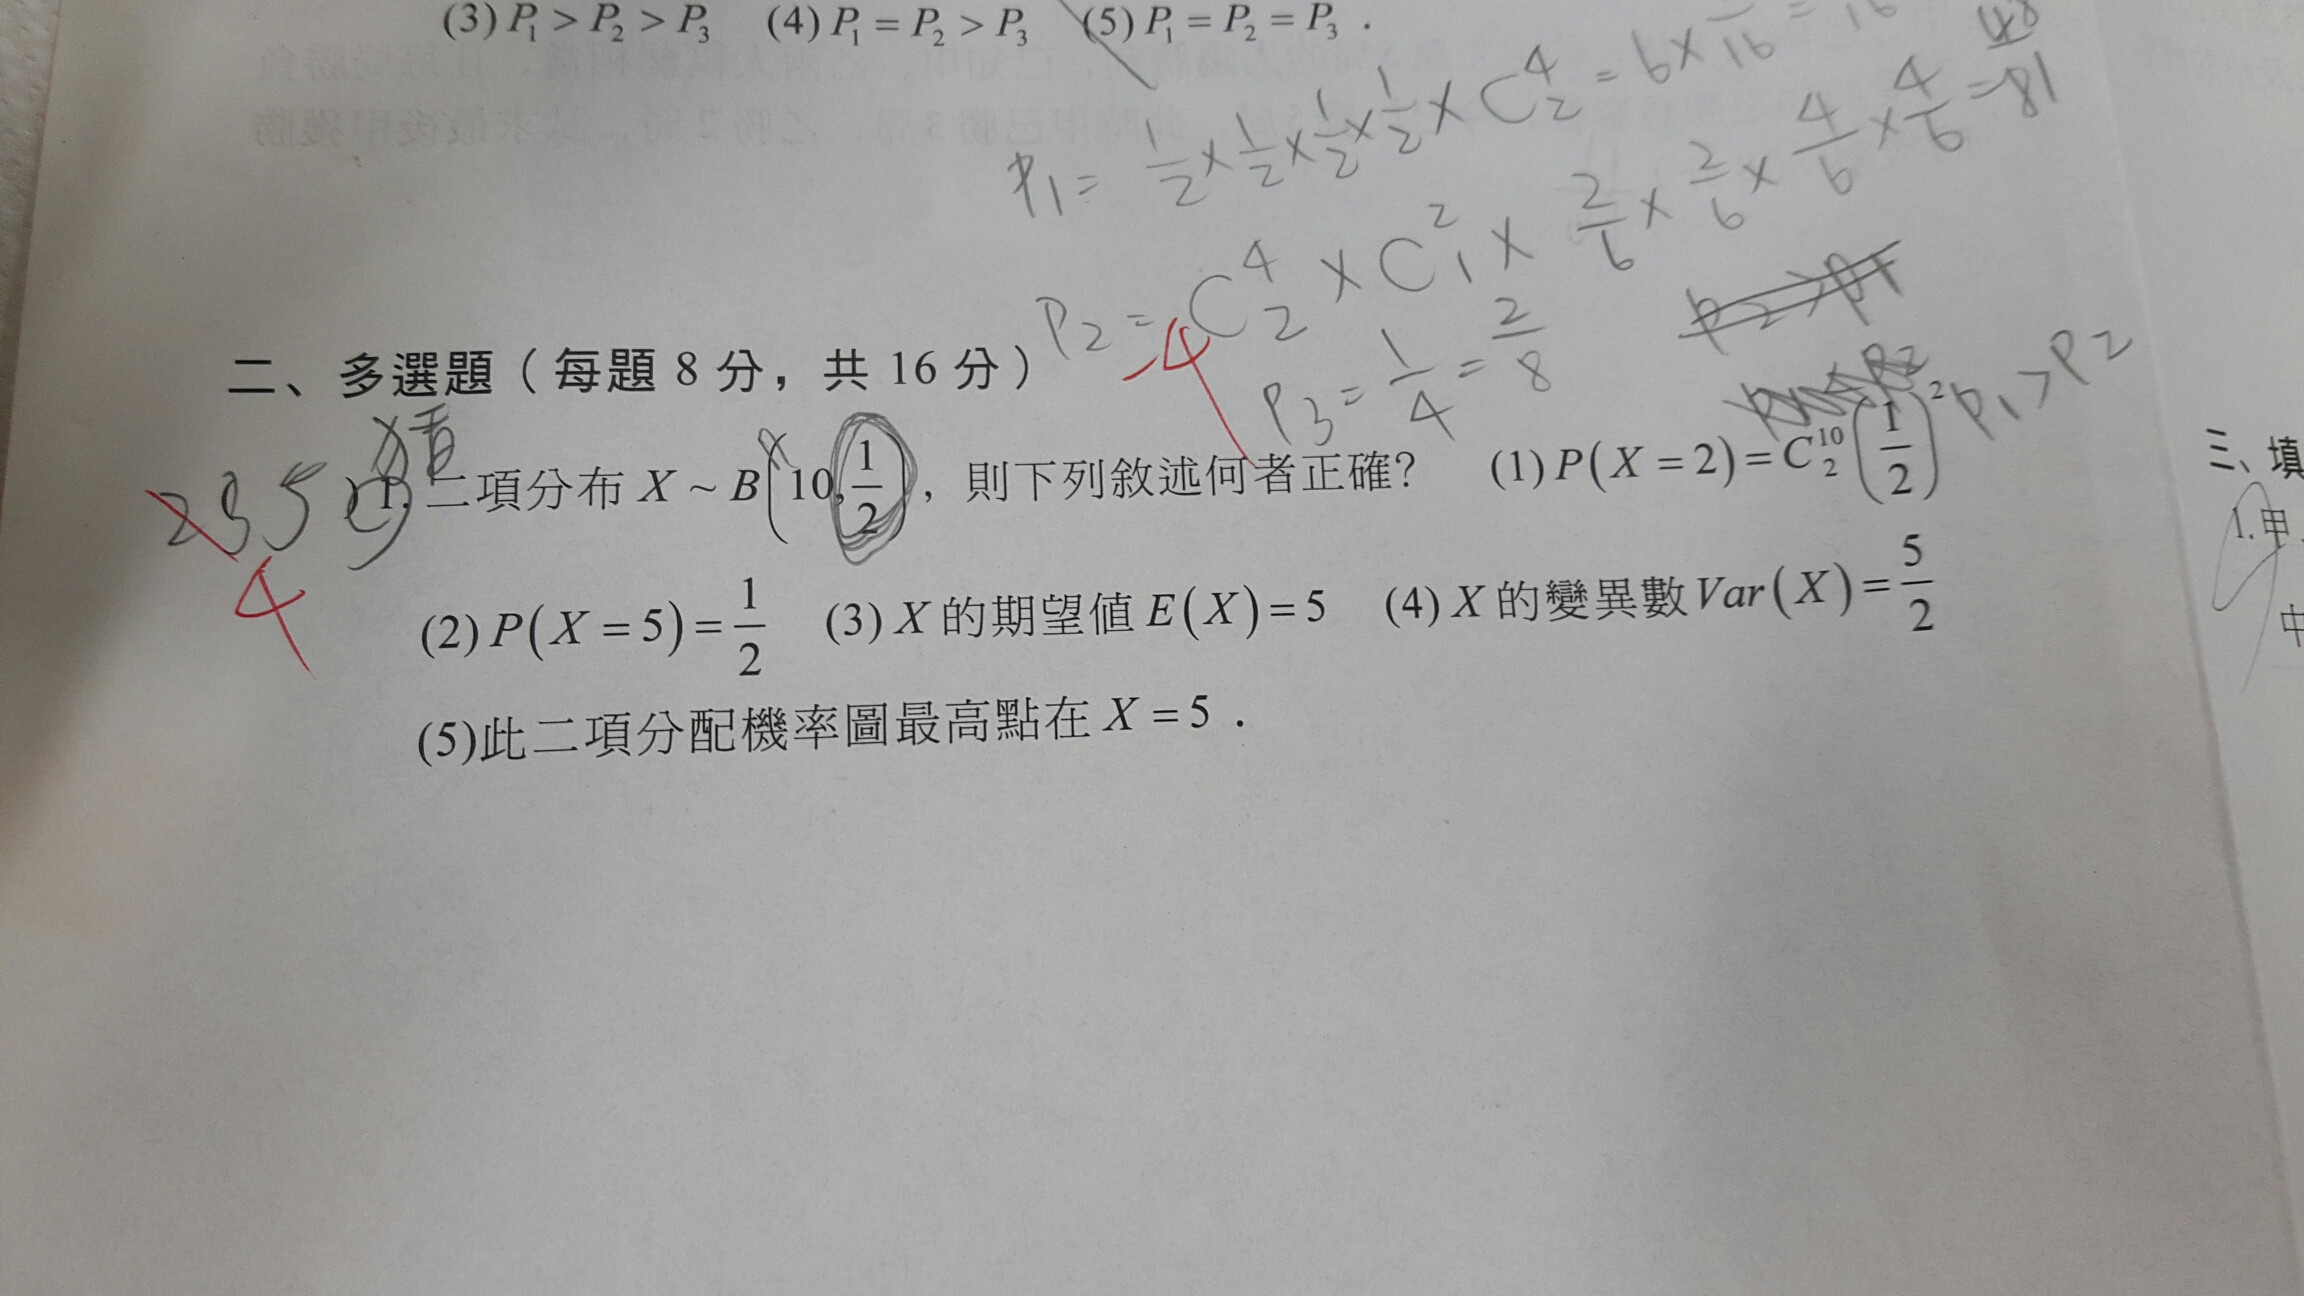 (3) P₁ > P₂ > P₃ (4) P₁ = P₂ > P₃ (5) P₁ = P₂ = P₃ .
P1 = 1/2 × 1/2 × 1/2 × 1/2 × C⁴₂ = 6 × /16 = 16
P2 = C⁴₂ × C²₁ × 2/6 × 2/6 × 4/6 × 4/6 = 48/81
P3 = 1/4 = 2/8
P2 > P1
P1 > P2
-4
二、多選題（每題 8 分，共 16 分）
235
4
1. 二項分布 X ~ B(10, 1/2)，則下列敘述何者正確? (1) P(X = 2) = C¹⁰₂ (1/2)²
(2) P(X = 5) = 1/2 (3) X 的期望值 E(X) = 5 (4) X 的變異數 Var(X) = 5/2
(5)此二項分配機率圖最高點在 X = 5 .
三、填
1. 甲、
中